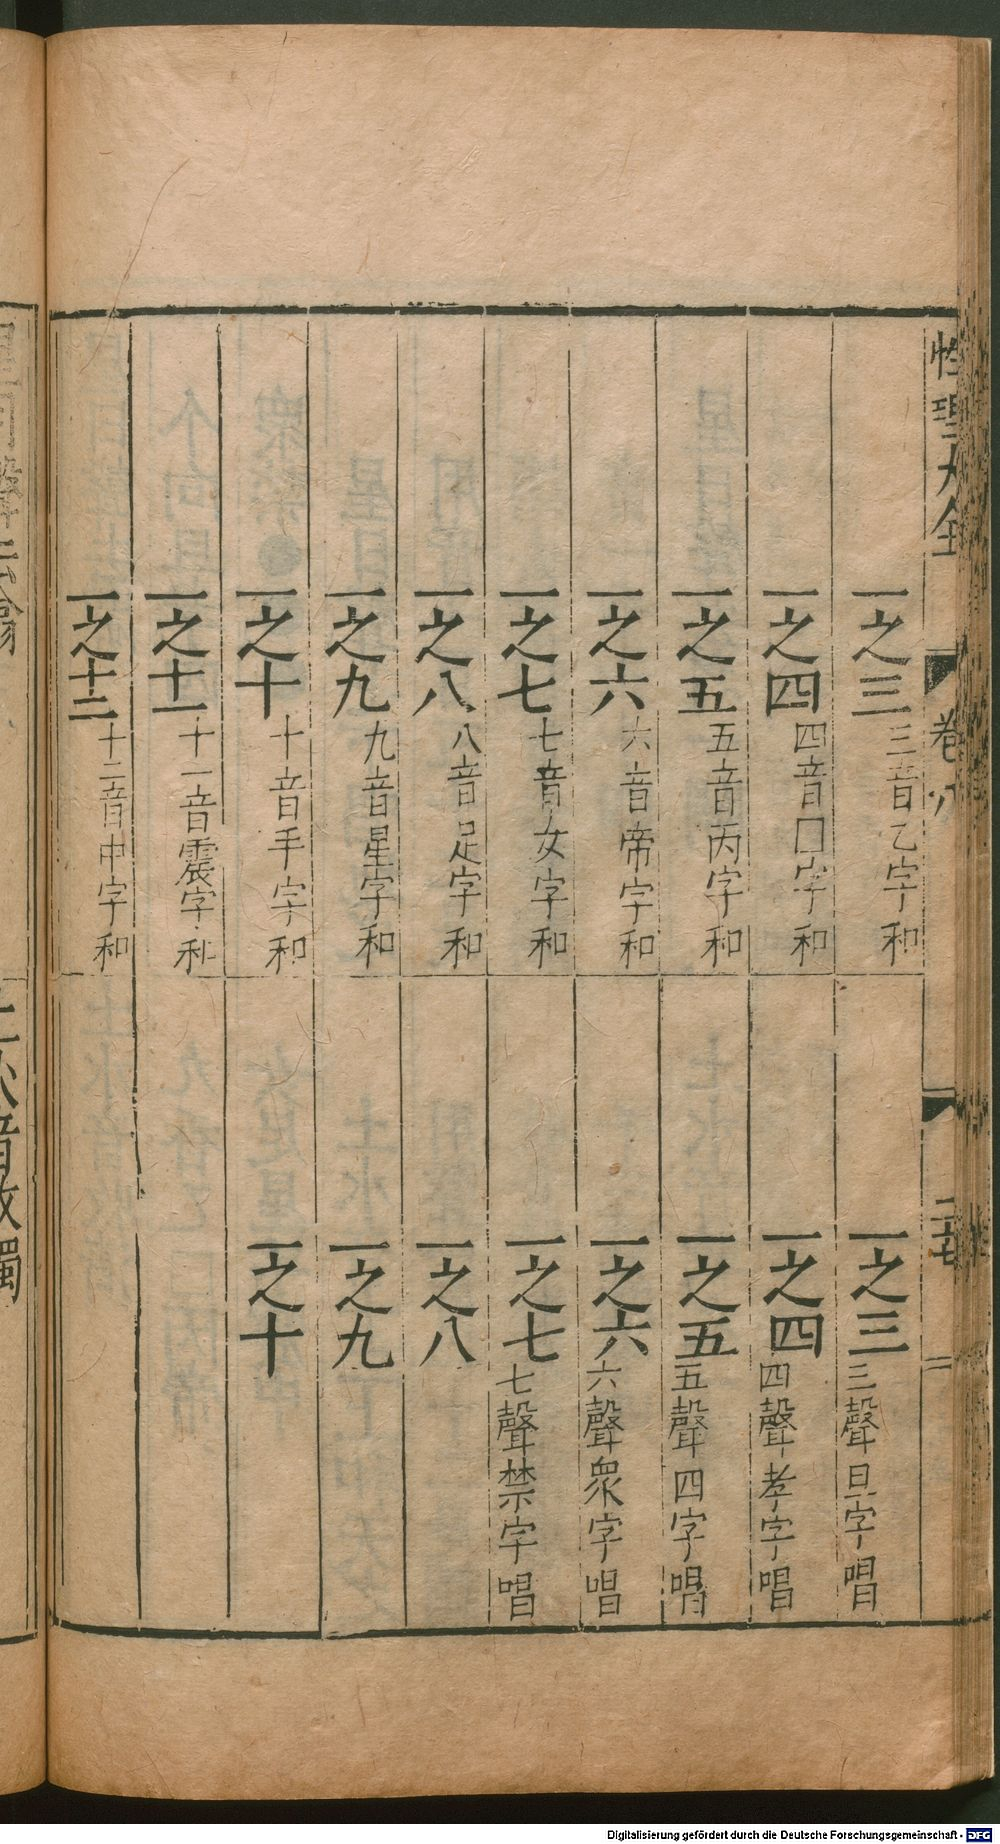 性理大全
卷八
一之三 三音乙字和
一之四 四音囗字和
一之五 五音丙字和
一之六 六音帝字和
一之七 七音女字和
一之八 八音足字和
一之九 九音星字和
一之十 十音手字和
一之十一 十一音震字和
一之十二 十二音中字和
一之三 三聲旦字唱
一之四 四聲孝字唱
一之五 五聲四字唱
一之六 六聲衆字唱
一之七 七聲禁字唱
一之八
一之九
一之十
Digitalisierung gefördert durch die Deutsche Forschungsgemeinschaft - DFG